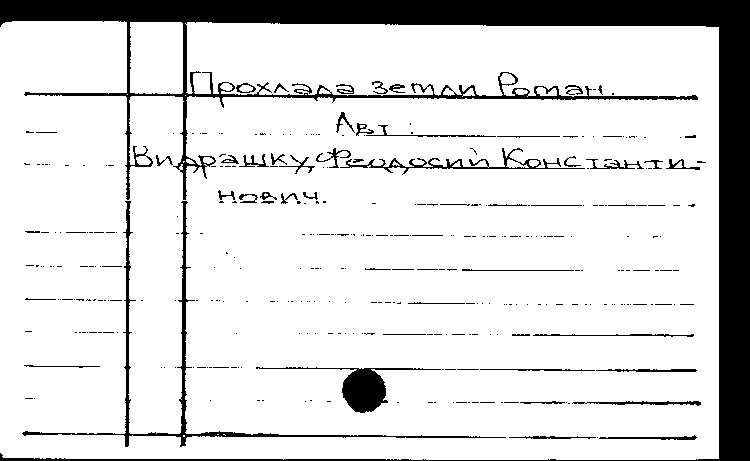 Прохлада земли. Роман.
Авт :
Видрашку, Феодосий Константи-
нович.